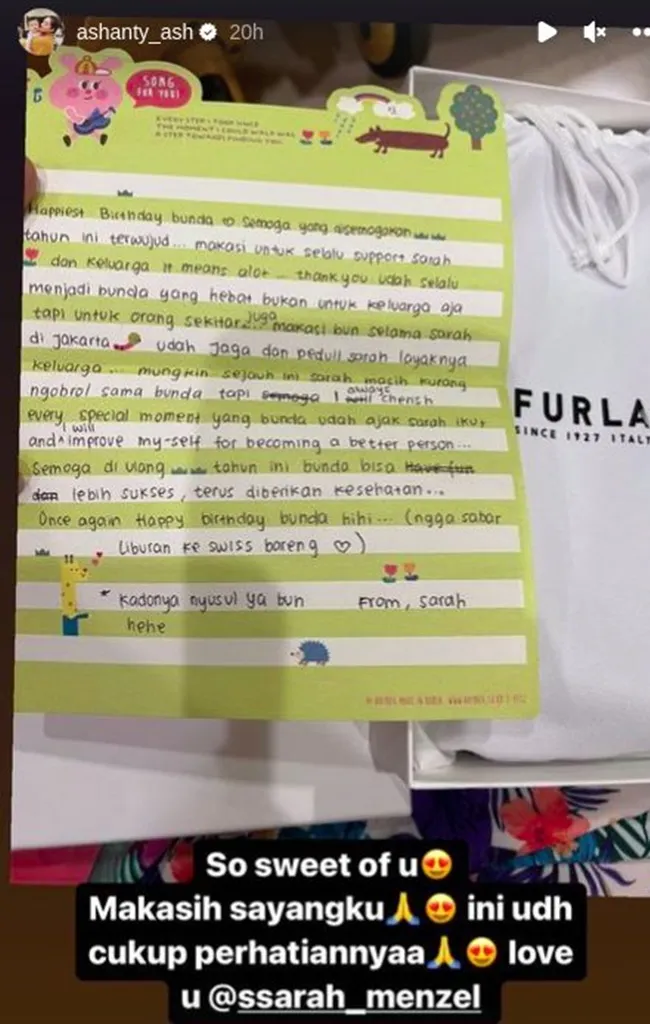 ashanty_ash 20h
SONG
FOR YOU!
EVERY STEP I TOOK SINCE
THE MOMENT I COULD WALK WAS
A STEP TOWARDS FINDING YOU
Happiest Birthday bunda Semoga yang disemogakan
tahun ini terwujud... makasi untuk selalu support sarah
dan keluarga it means alot... thankyou udah selalu
menjadi bunda yang hebat bukan untuk keluarga aja
tapi untuk orang sekitar... juga makasi bun selama sarah
di Jakarta udah jaga dan peduli sarah layaknya
keluarga... mungkin sejauh ini sarah masih kurang
ngobrol sama bunda tapi semoga I always will cherish
every special moment yang bunda udah ajak sarah ikut
and I will improve my-self for becoming a better person...
Semoga di ulang tahun ini bunda bisa have fun
dan lebih sukses, terus diberikan kesehatan...
Once again Happy birthday bunda hihi... (ngga sabar
liburan ke swiss bareng ♡)
* kadonya nyusul ya bun From, sarah
hehe
FURLA
SINCE 1927 ITALY
So sweet of u😍
Makasih sayangku🙏😍 ini udh
cukup perhatiannyaa🙏😍 love
u @ssarah_menzel